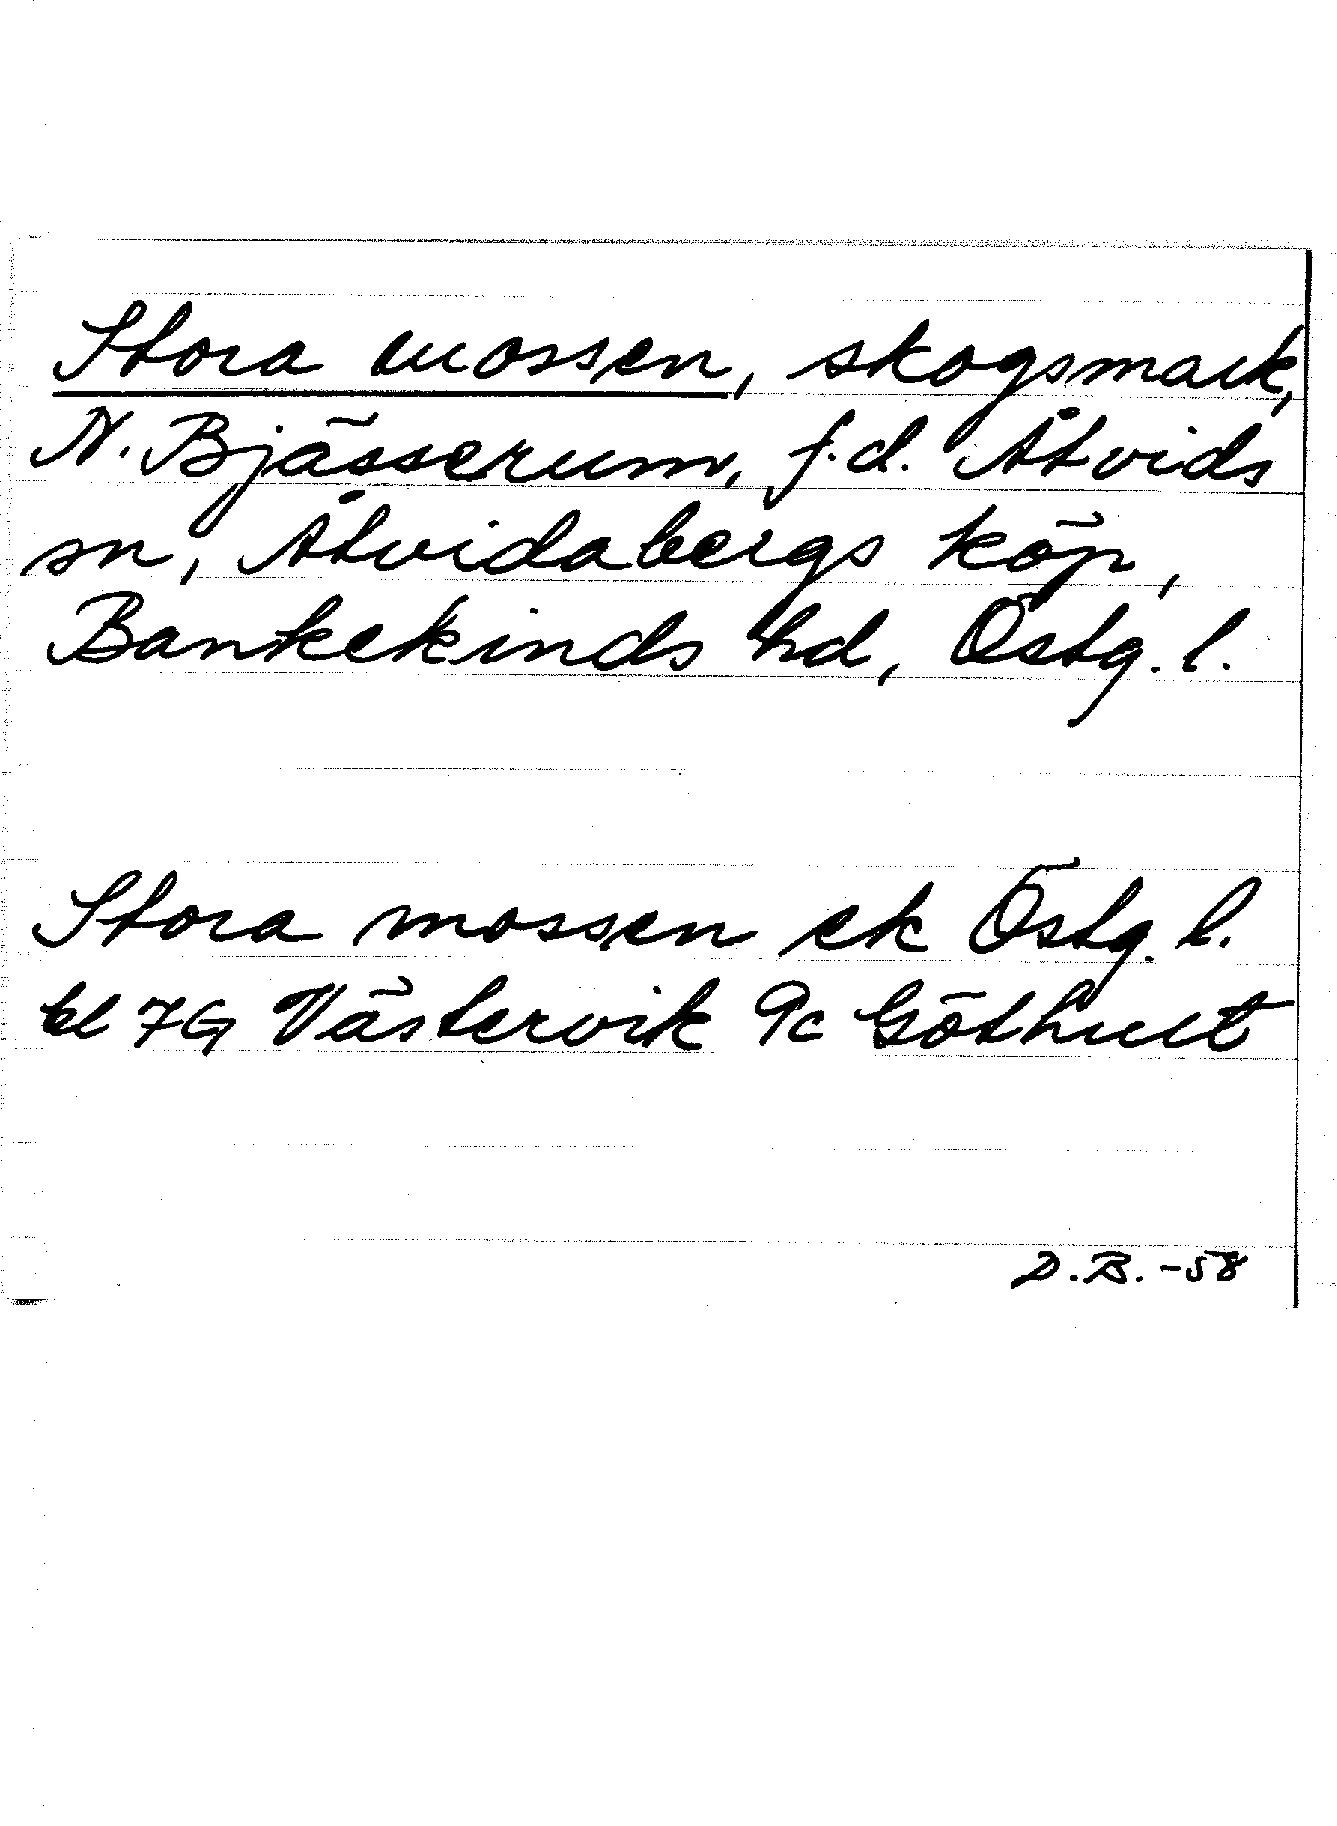 Stora mossen, skogsmark,
N. Bjässerum, f.d. Åtvids
sn, Åtvidabergs köp,
Bankekinds hd, Östg. l.
Stora mossen ek Östg. l.
bl 7G Västervik 9c Göthult
D.B. -58